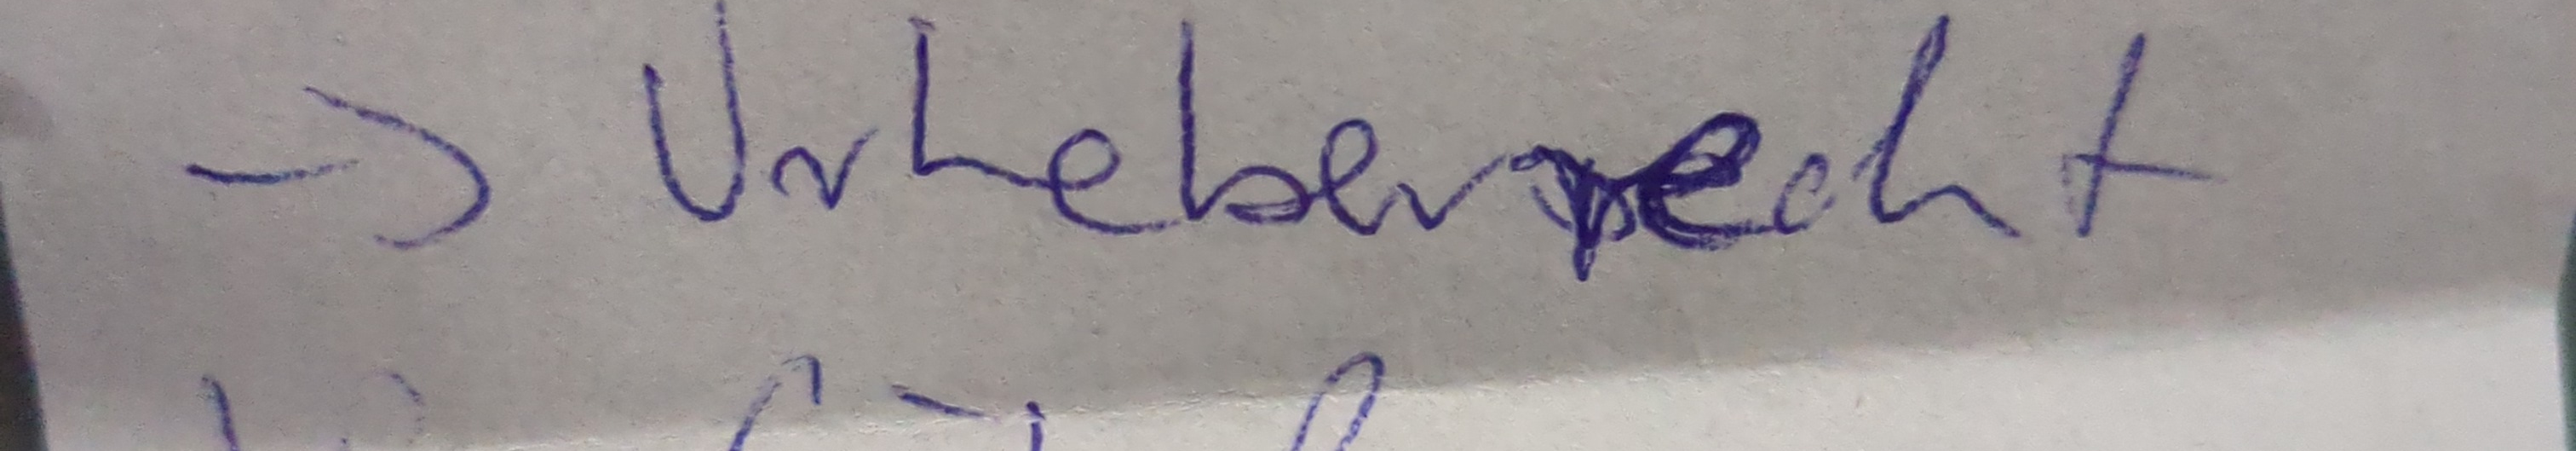 → Urheberrecht